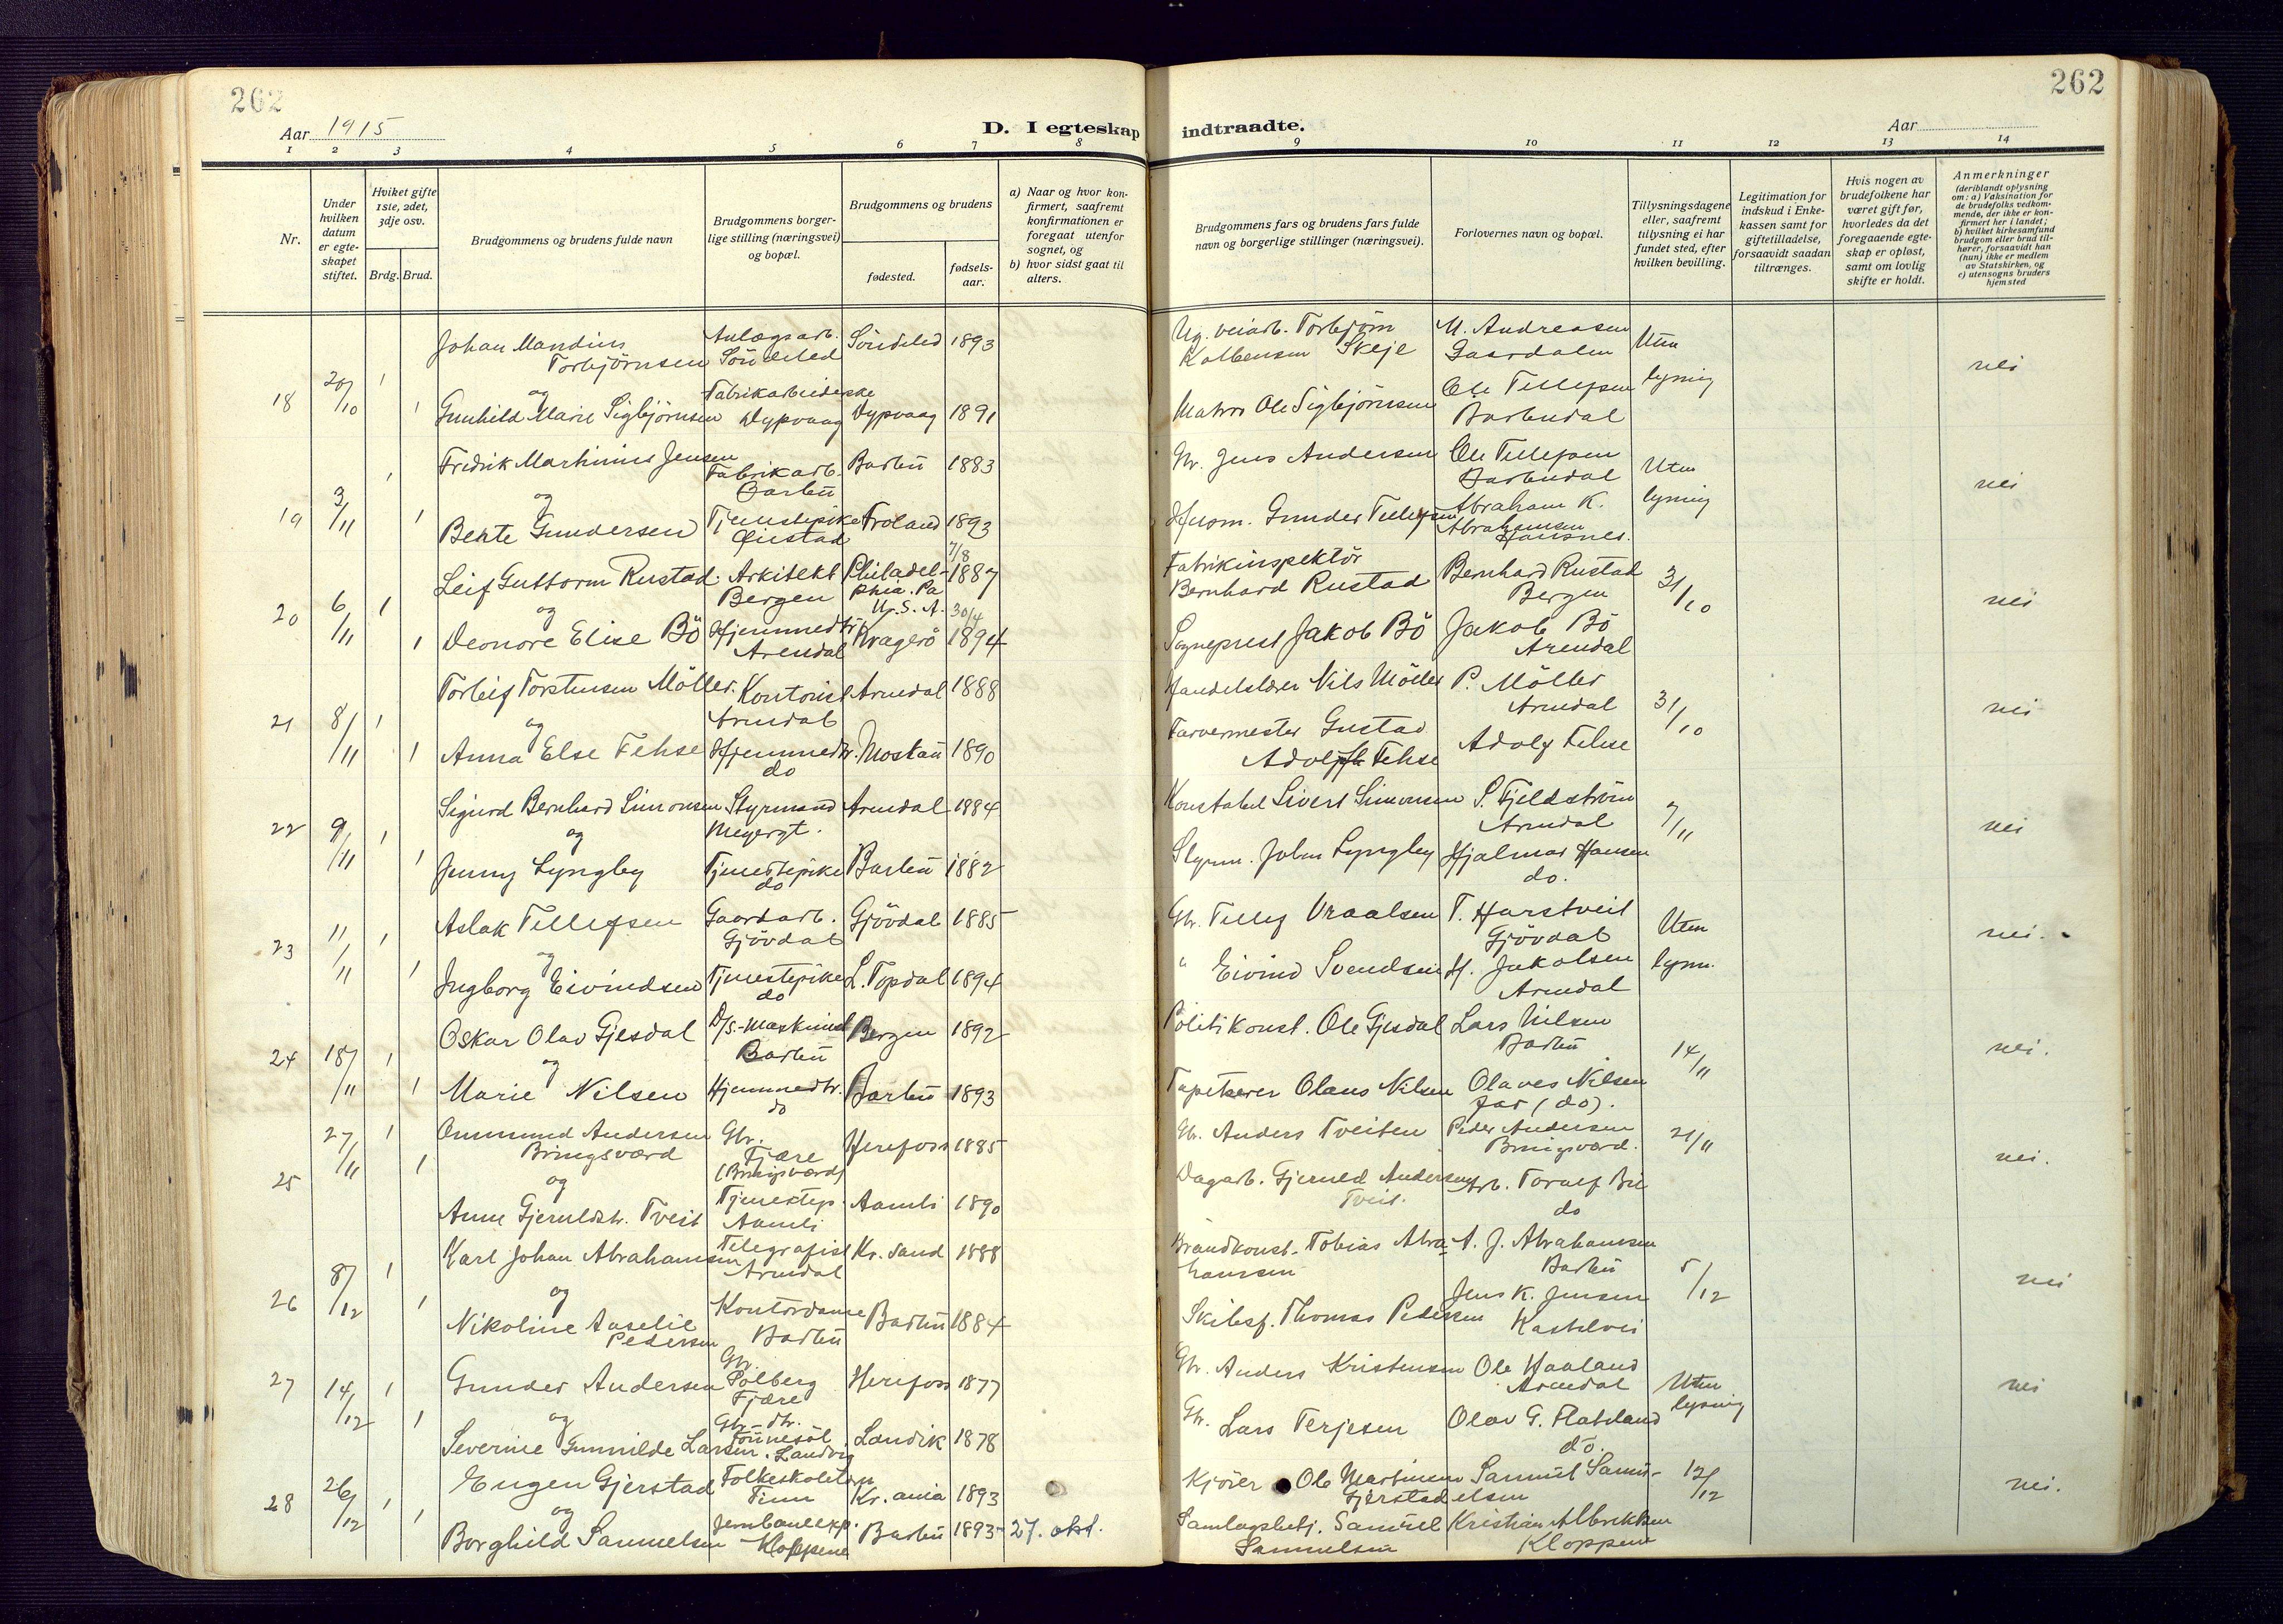 262
262
Aar 1915
D. I egteskap indtraadte.
Aar
1 2 3 4 5 6 7 8 9 10 11 12 13 14
Nr.
Under hvilken datum er egteskapet stiftet.
Hviket gifte 1ste, 2det, 3dje osv.
Brdg. Brud.
Brudgommens og brudens fulde navn
Brudgommens borgerlige stilling (næringsvei) og bopæl.
Brudgommens og brudens
fødested.
fødselsaar.
a) Naar og hvor konfirmert, saafremt konfirmationen er foregaat utenfor sognet, og
b) hvor sidst gaat til alters.
Brudgommens fars og brudens fars fulde navn og borgerlige stillinger (næringsvei).
Forlovernes navn og bopæl.
Tillysningsdagene eller, saafremt tillysning ei har fundet sted, efter hvilken bevilling.
Legitimation for indskud i Enkekassen samt for giftetilladelse, forsaavidt saadan tiltrænges.
Hvis nogen av brudefolkene har været gift før, hvorledes da det foregaaende egteskap er opløst, samt om lovlig skifte er holdt.
Anmerkninger
(deriblandt oplysning om: a) Vaksination for de brudefolks vedkommende, der ikke er konfirmert her i landet; b) hvilket kirkesamfund brudgom eller brud tilhører, forsaavidt han (hun) ikke er medlem av Statskirken, og c) utensogns bruders hjemsted
18 20/10 1 Johan Mandius Torbjörnsen Anlægsarb. Söndeled Söndeled 1893 Ug. veiarb. Torbjörn Kolbensen Skeje M. Andreasen Gaardalen Uten lysning nei
og
1 Gunhild Marie Sigbjörnsen Fabrikarbeiderske Dypvaag Dypvaag 1891 Matros Ole Sigbjörnsen Ole Tellefsen Barbudal
19 3/11 1 Fredrik Marthinius Jensen Fabrikarb. Barbu Barbu 1883 Gbr. Jens Andersen Ole Tellefsen Barbudal Uten lysning nei
og
1 Bente Gundersen Tjenestepike Froland 1893 Gunder Tellefsen Abraham K. Abrahamsen
20 6/11 1 Leif Guttorm Rustad Arkitekt Bergen Philadelphia. Pa U. S. A. 7/8 1887 Fabrikinspektör Bernhard Rustad Bernhard Rustad Bergen 31/10 nei
og
1 Deonore Elise Bö Hjemmedtr. Arendal Kragerö 30/4 1894 Sogneprest Jakob Bö Jakob Bö Arendal
21 8/11 1 Torleif Torstensen Möller Kontorist Arendal Arendal 1888 Nils Möller P. Möller Arendal 31/10 nei
og
1 Anna Else Fehse Hjemmedtr. do Moskau 1890 Farvermester Gustav Adolph Fehse Adolf Fehse
22 9/11 1 Sigurd Bernhard Simonsen Styrmand Meyergt. Arendal 1884 Konstabel Sivert Simonsen S. Fjeldström Arendal 7/11 nei
og
1 Jenny Lyngby Tjenestepike do Barbu 1882 Styrm. John Lyngby Hjalmar Hansen do.
23 11/11 1 Aslak Tellefsen Gaardarb. Gjövdal Gjövdal 1885 Gbr. Tellef Vraalsen T. Harstveit Gjövdal Uten lysn. nei.
og
1 Ingborg Eivindsen Tjenestepike do L. Topdal 1894 " Eivind Svendsen H. Jakobsen Arendal
24 18/11 1 Oskar Olav Gjesdal D/s.-Maskinist Barbu Bergen 1892 Politikonst. Ole Gjesdal Lars Nilsen Barbu 14/11 nei.
og
1 Marie Nilsen Hjemmedtr. do Barbu 1893 Tapetserer Olaus Nilsen Olaves Nilsen far (do).
25 27/11 1 Ommund Andersen Bringsværd Gbr. Fjære (Bringsværd) Herefoss 1885 Gbr. Anders Tveiten Peder Andersen Bringsværd. 21/11 nei.
og
1 Anne Gjeruldstr. Tveit Tjenestep. Aamli Aamli 1890 Dagarb. Gjeruld Andersen Tveit. Arb. Toralf Bie do
26 8/12 1 Karl Johan Abrahamsen Telegrafist Arendal Kr. sand 1888 Brandkonst. Tobias Abrahamsen A. J. Abrahamsen Barbu 5/12 nei
og
1 Nikoline Auselie Pedersen Kontordame Barbu Barbu 1884 Skibsf. Thomas Pedersen Jens K. Jensen Kastelvei
27 14/12 1 Gunder Andersen Gbr. Solberg Fjære Herefoss 1877 Gbr. Anders Kristensen Ole Haaland Arendal Uten lysning nei
og
1 Severine Gunnilde Larsen Gbr. dtr. Tönnesöl Landvig Landvik 1878 Gbr. Lars Terjesen Olav G. Flateland do.
28 26/12 1 Eugen Gjerstad Tinn Kr. ania 1893 Kjörer Ole Martinsen Gjerstad Samuel Samuelsen 12/12 nei.
og
1 Borghild Samuelsen Jernbaneexp. Kloppene Barbu 1893 27. okt. Samlagsbetj. Samuel Samuelsen Kristian Albrektsen Kloppene